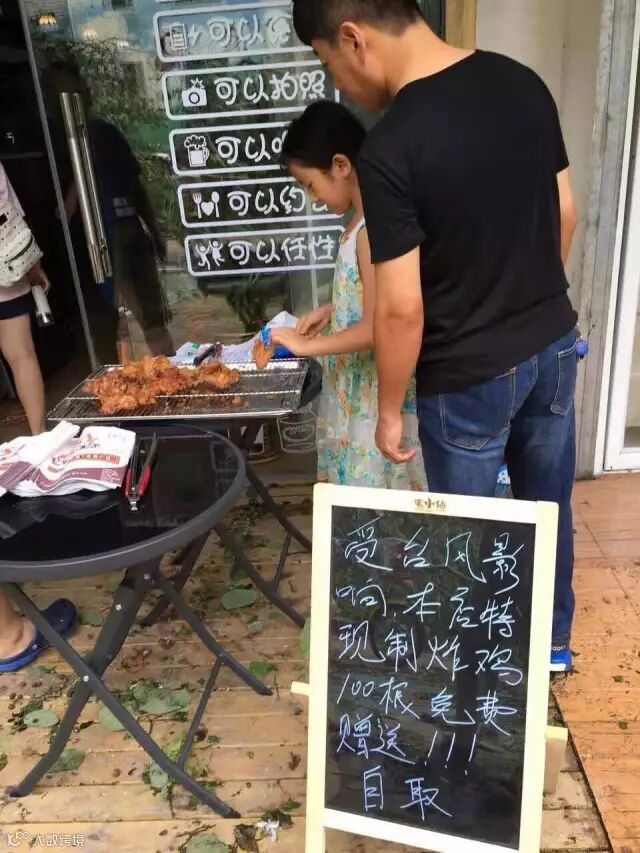 可以
可以拍照
可以
可以约
可以任性
宅小仙
受台风影
响，本店特
现制炸鸡
100根免费
赠送！！！
自取
大数跨境